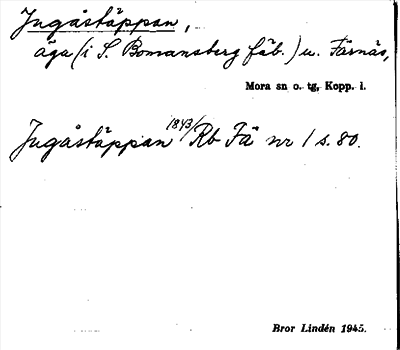 Jugåstäppan,
äga (i S. Bomansberg fäb.) u. Färnäs,
Mora sn o. tg, Kopp. l.
Jugåstäppan 1843/Rb Fä nr 1 s. 80.
Bror Lindén 1945.